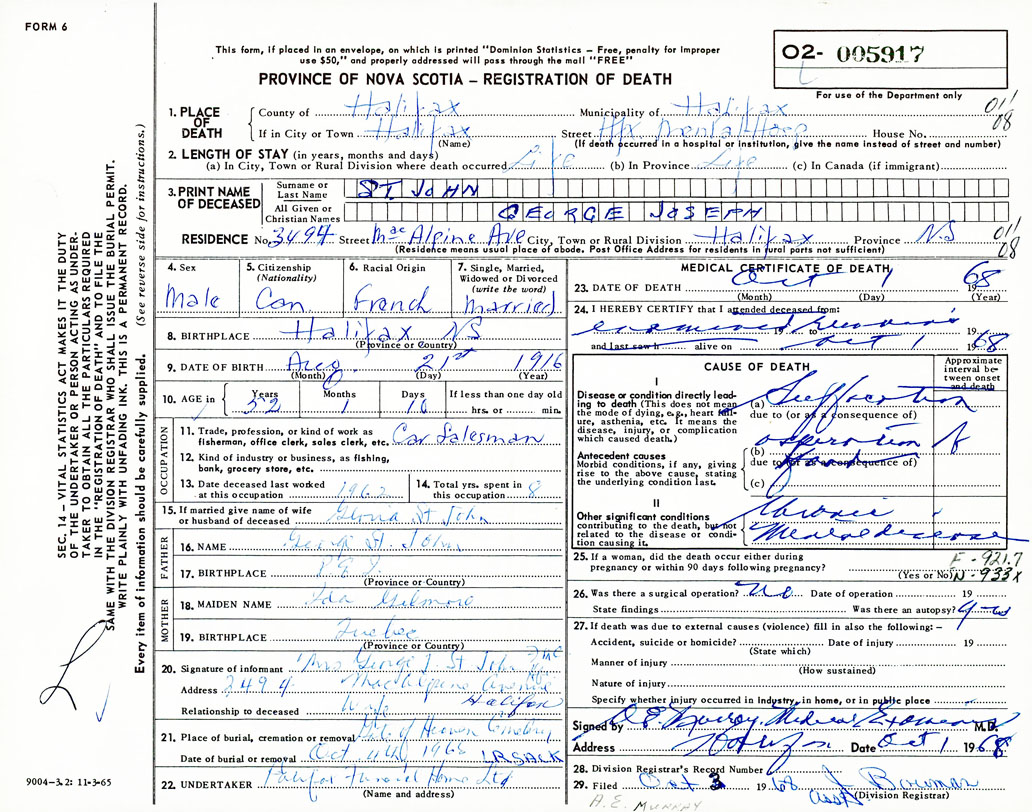 FORM 6
This form, if placed in an envelope, on which is printed "Dominion Statistics – Free, penalty for improper
use $50," and properly addressed will pass through the mail "FREE"
PROVINCE OF NOVA SCOTIA – REGISTRATION OF DEATH
O2- 005917
For use of the Department only
SEC. 14 – VITAL STATISTICS ACT MAKES IT THE DUTY
OF THE UNDERTAKER OR PERSON ACTING AS UNDER-
TAKER TO OBTAIN ALL THE PARTICULARS REQUIRED
IN THE "REGISTRATION OF DEATH" AND TO FILE THE
SAME WITH THE DIVISION REGISTRAR WHO SHALL ISSUE THE BURIAL PERMIT.
WRITE PLAINLY WITH UNFADING INK. THIS IS A PERMANENT RECORD.
Every item of information should be carefully supplied. (See reverse side for instructions.)
1. PLACE OF DEATH
County of Halifax Municipality of Halifax 011
08
If in City or Town Halifax Street Hfx Mental Hosp House No.
(Name) (If death occurred in a hospital or institution, give the name instead of street and number)
2. LENGTH OF STAY (in years, months and days)
(a) In City, Town or Rural Division where death occurred Life (b) In Province Life (c) In Canada (if immigrant)
3. PRINT NAME OF DECEASED
Surname or Last Name ST. JOHN
All Given or Christian Names GEORGE JOSEPH
RESIDENCE No. 3494 Street MacAlpine Ave City, Town or Rural Division Halifax Province N.S 011
08
(Residence means usual place of abode. Post Office Address for residents in rural parts not sufficient)
4. Sex Male
5. Citizenship (Nationality) Can
6. Racial Origin French
7. Single, Married, Widowed or Divorced (write the word) Married
8. BIRTHPLACE Halifax NS
(Province or Country)
9. DATE OF BIRTH Aug 21st 1916
(Month) (Day) (Year)
10. AGE in Years 52 Months 1 Days 10 If less than one day old hrs. or min.
OCCUPATION
11. Trade, profession, or kind of work as
fisherman, office clerk, sales clerk, etc. Car Salesman
12. Kind of industry or business, as fishing,
bank, grocery store, etc.
13. Date deceased last worked
at this occupation 1962
14. Total yrs. spent in
this occupation 8
15. If married give name of wife
or husband of deceased Gloria St John
FATHER
16. NAME George St. John
17. BIRTHPLACE P.E.I.
(Province or Country)
MOTHER
18. MAIDEN NAME Ida Gilmore
19. BIRTHPLACE Quebec
(Province or Country)
20. Signature of informant Mrs George J. St John
Address 3494 MacAlpine Avenue
Halifax
Relationship to deceased Wife
21. Place of burial, cremation or removal
Date of burial or removal Oct 4th 1968 I.R. SACK
22. UNDERTAKER Halifax Funeral Home Ltd
(Name and address)
9004-3.2: 11-3-65
MEDICAL CERTIFICATE OF DEATH
23. DATE OF DEATH Oct 1 1968
(Month) (Day) (Year)
24. I HEREBY CERTIFY that I attended deceased from:
examined remains 19 to 19
and last saw h alive on Oct 1 1968
CAUSE OF DEATH
Approximate interval between onset and death
I
Disease or condition directly leading to death (This does not mean the mode of dying, e.g., heart failure, asthenia, etc. It means the disease, injury, or complication which caused death.)
(a) Suffocation
due to (or as a consequence of)
Antecedent causes
Morbid conditions, if any, giving rise to the above cause, stating the underlying condition last.
(b) aspiration of
due to (or as a consequence of)
food
(c)
II
Other significant conditions
contributing to the death, but not related to the disease or condition causing it.
Chronic
Mental disease
25. If a woman, did the death occur either during
pregnancy or within 90 days following pregnancy?
(Yes or No)
E-921.7
N-933X
26. Was there a surgical operation? No Date of operation 19
State findings Was there an autopsy? yes
27. If death was due to external causes (violence) fill in also the following: –
Accident, suicide or homicide? Date of injury 19
(State which)
Manner of injury
(How sustained)
Nature of injury
Specify whether injury occurred in industry, in home, or in public place
Signed by Medical Examiner M.D.
Address Halifax Date Oct 1 1968
28. Division Registrar's Record Number
29. Filed Oct 3 1968 J Bowman
asst (Division Registrar)
A.E. MURRAY